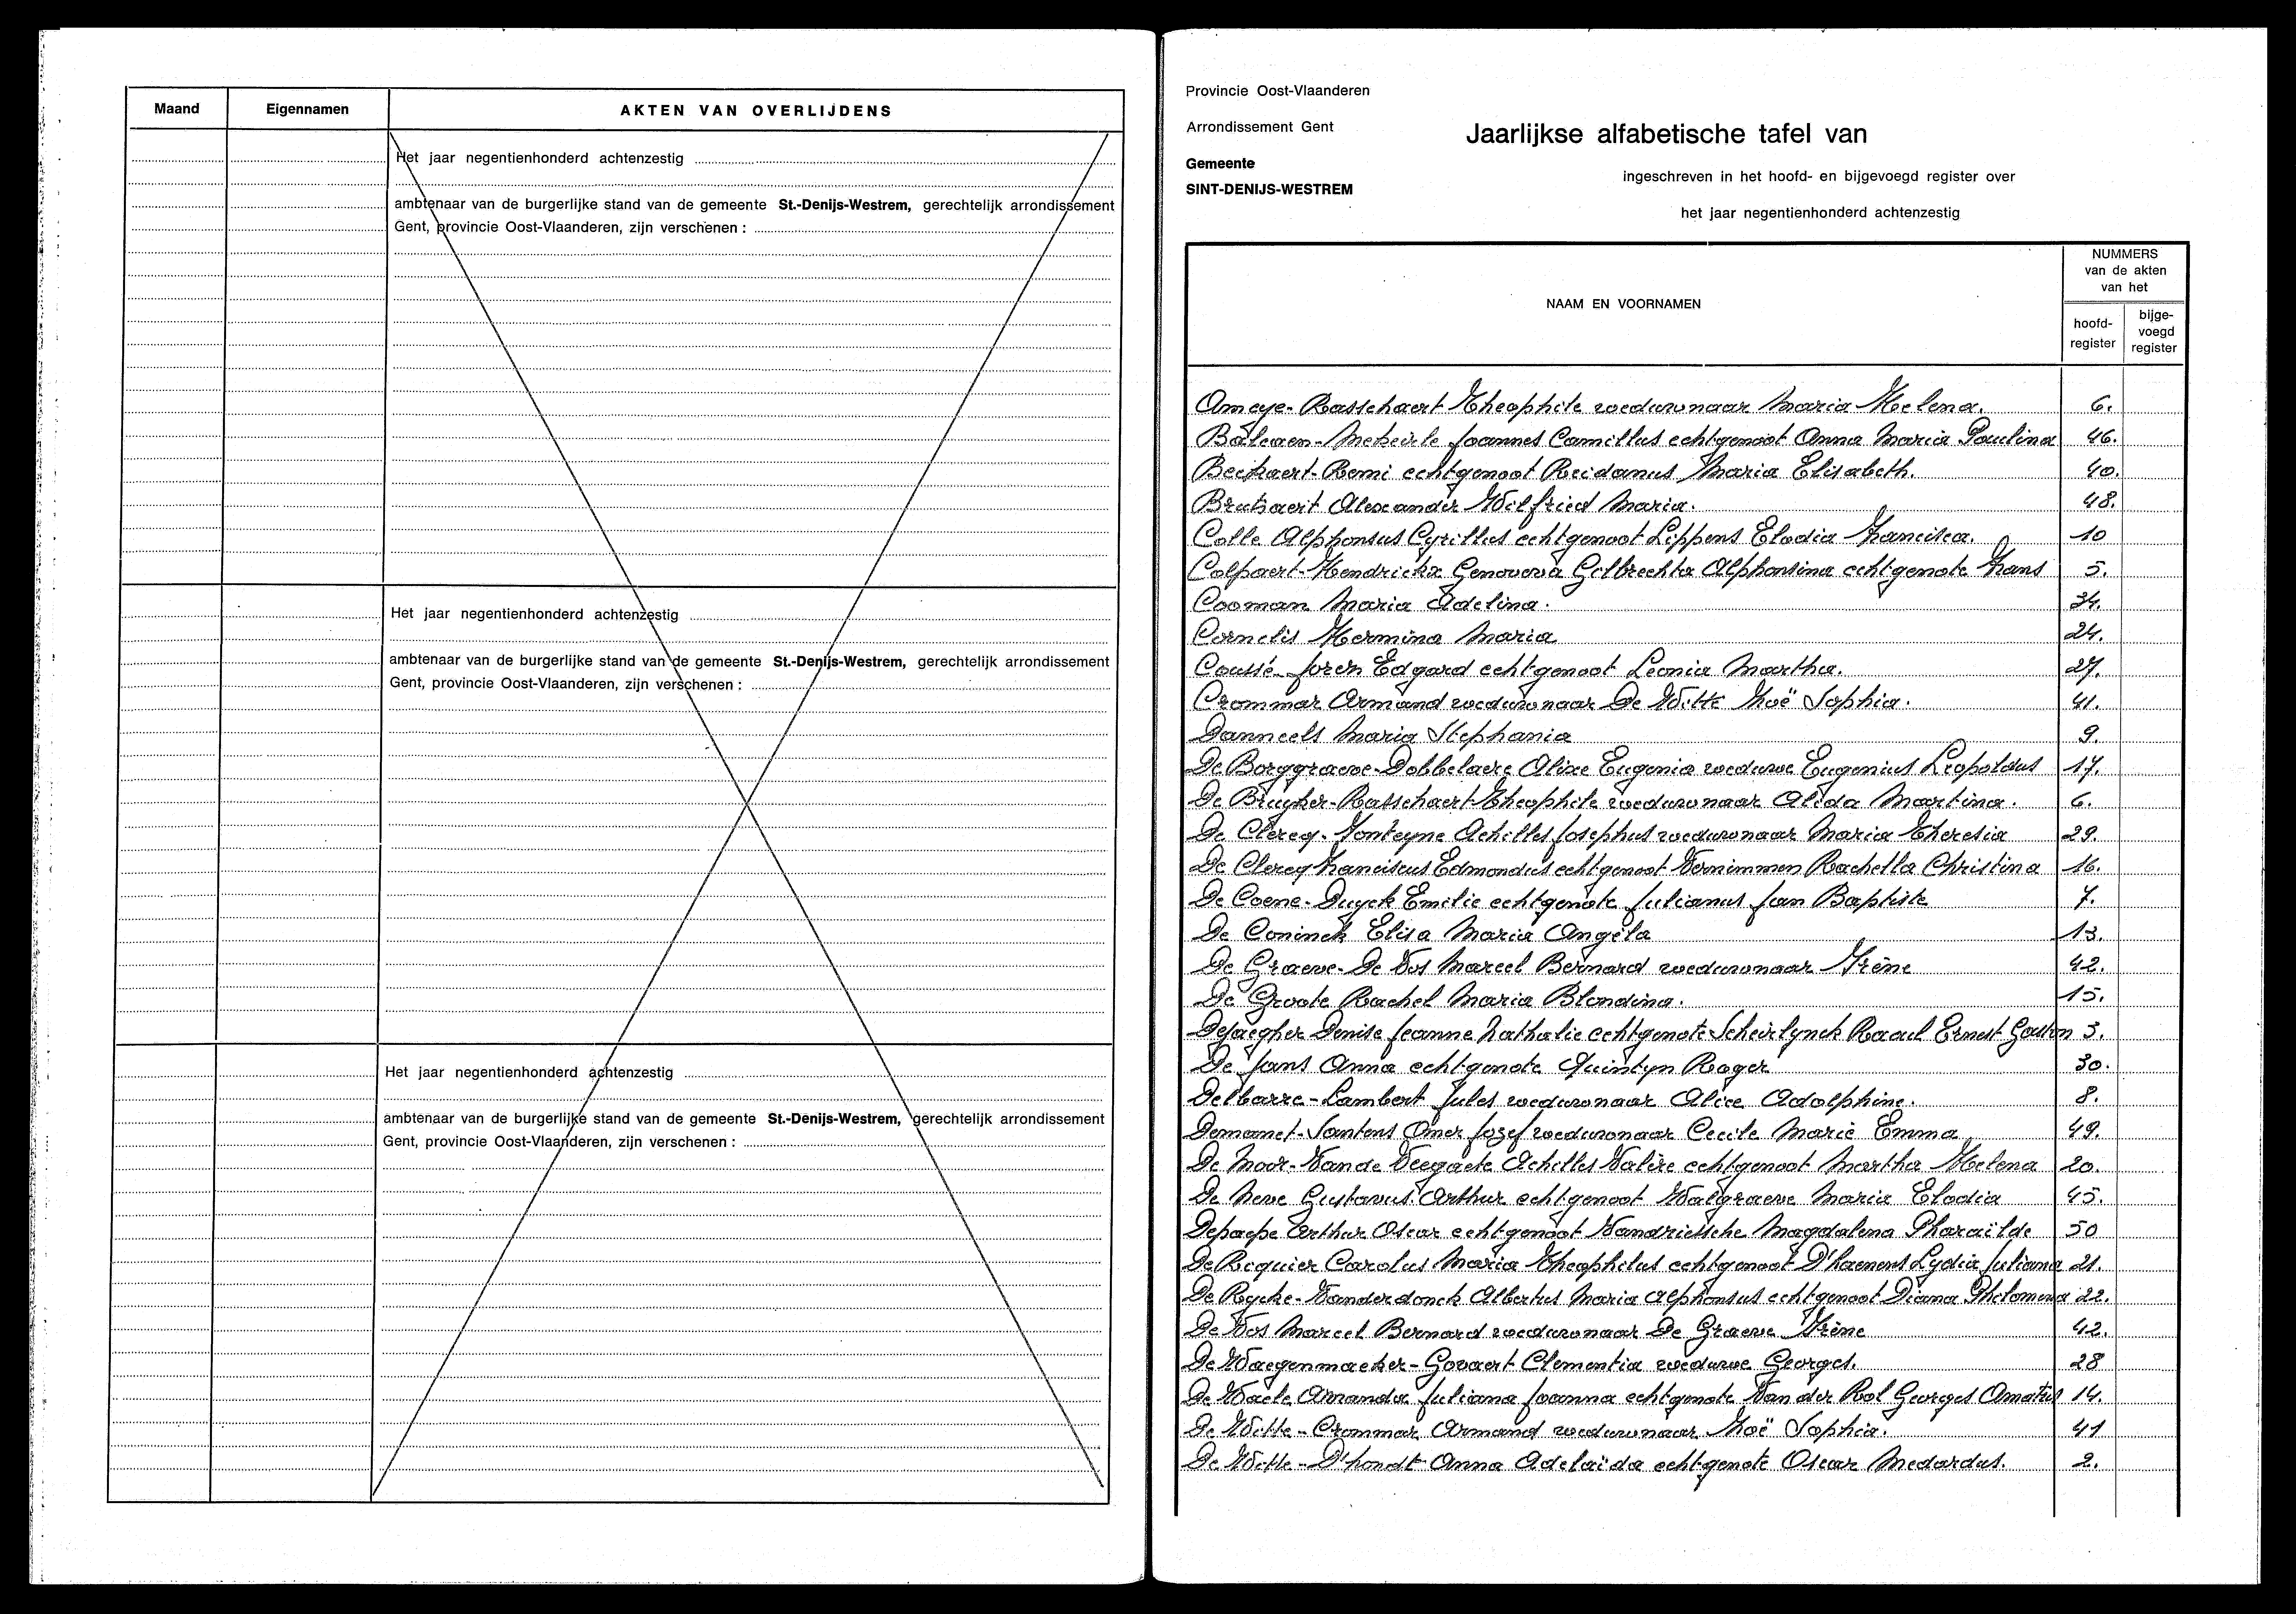 Maand Eigennamen AKTEN VAN OVERLIJDENS
Het jaar negentienhonderd achtenzestig
ambtenaar van de burgerlijke stand van de gemeente St.-Denijs-Westrem, gerechtelijk arrondissement
Gent, provincie Oost-Vlaanderen, zijn verschenen :
Het jaar negentienhonderd achtenzestig
ambtenaar van de burgerlijke stand van de gemeente St.-Denijs-Westrem, gerechtelijk arrondissement
Gent, provincie Oost-Vlaanderen, zijn verschenen :
Het jaar negentienhonderd achtenzestig
ambtenaar van de burgerlijke stand van de gemeente St.-Denijs-Westrem, gerechtelijk arrondissement
Gent, provincie Oost-Vlaanderen, zijn verschenen :
Provincie Oost-Vlaanderen
Arrondissement Gent
Gemeente
SINT-DENIJS-WESTREM
Jaarlijkse alfabetische tafel van
ingeschreven in het hoofd- en bijgevoegd register over
het jaar negentienhonderd achtenzestig
NAAM EN VOORNAMEN
NUMMERS
van de akten
van het
hoofd-
register
bijge-
voegd
register
Ameye-Rasschaert Theophile weduwnaar Maria Helena. 6.
Balcaen-Mekeirle Joannes Camillus echtgenoot Anna Maria Paulina 46.
Beckaert-Remi echtgenoot Reidanus Maria Elisabeth. 40.
Alexander Wilfried Maria. 48.
Colle Alphonsus Cyrillus echtgenoot Lippens Elodia Francisca. 10
Colpaert-Hendrickx Genoveva Gelbrechta Alphonsina echtgenote Frans 5.
Cooman Maria Adelina. 34.
Cornelis Hermina Maria 24.
Coussé-Joren Edgard echtgenoot Leonia Martha. 27.
Crommar Armand weduwnaar De Witte Zoë Sophia. 41.
Danneels Maria Stephania 9.
De Borggraeve-Dobbelaere Alixe Eugenia weduwe Eugenius Leopoldus 17.
De Bruyker-Rasschaert Theophile weduwnaar Alida Martina. 6.
De Clercq-Monteyne Achilles Josephus weduwnaar Maria Theresia 29.
De Clercq Franciscus Edmondus echtgenoot Vernimmen Rachella Christina 16.
De Coene-Duyck Emilie echtgenote Julianus Jan Baptiste 7.
De Coninck Elisa Maria Angela 13.
De Graeve-De Vos Marcel Bernard weduwnaar Irène 42.
De Groote Rachel Maria Blondina. 15.
Dejaegher Denise Jeanne Nathalie echtgenote Scheirlynck Raoul Ernest Gaston 3.
De Jans Anna echtgenote Quintyn Roger 30.
Delbarre-Lambert Jules weduwnaar Alice Adolphine. 8.
Demanet-Santens Omer Jozef weduwnaar Cecile Marie Emma 49.
De Moor-Van de Veegaete Achilles Valère echtgenoot Martha Helena 20.
De Neve Gustavus Arthur echtgenoot Walgraeve Maria Elodia 45.
Depaepe Arthur Oscar echtgenoot Vandriessche Magdalena Pharaïlde 50
De Requier Carolus Maria Theophilus echtgenoot D'haenens Lydia Juliana 21.
De Rycke-Vanderdonck Albertus Maria Alphonsus echtgenoot Diana Philomena 22.
De Vos Marcel Bernard weduwnaar De Graeve Irène 42.
De Waegenmaeker-Govaert Clementia weduwe Georges. 28
De Waele Amanda Juliana Joanna echtgenote Van der Pol Georges Amatus 14.
De Witte-Crommar Armand weduwnaar Zoë Sophia. 41
De Witte-D'hondt Anna Adelaïda echtgenote Oscar Medardus. 2.